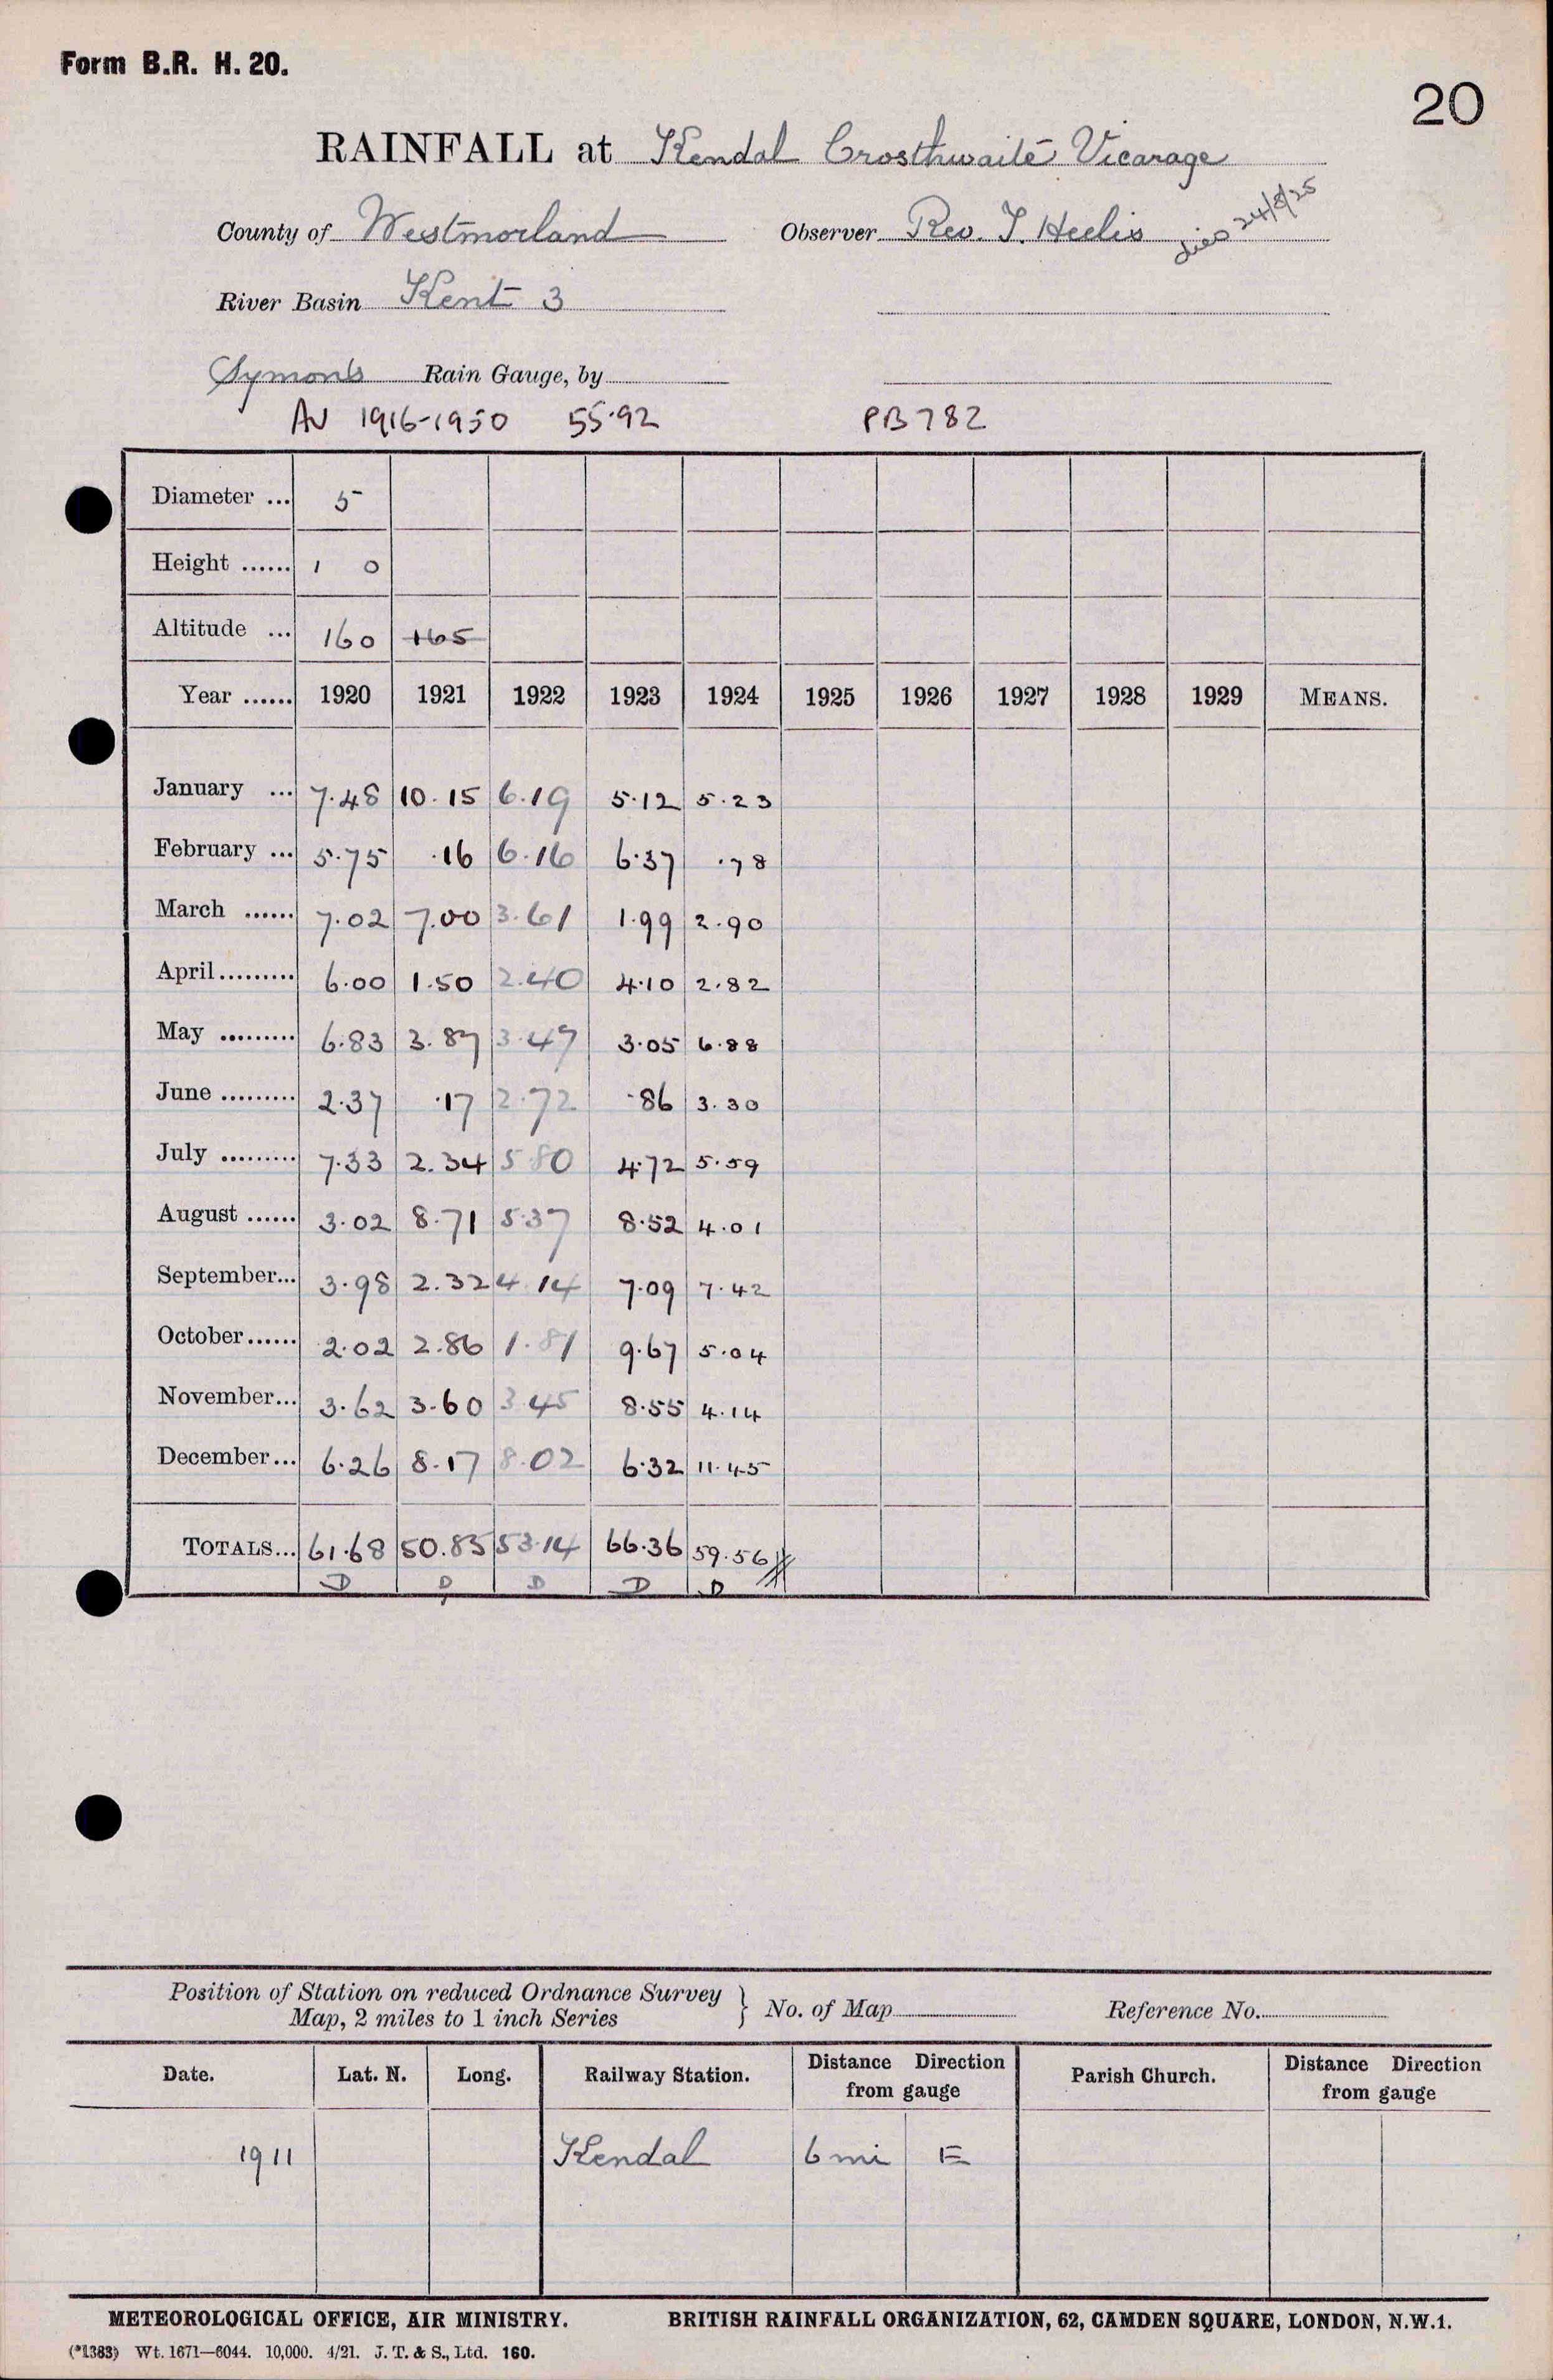 Form B.R. H. 20.
20
RAINFALL at Kendal Crosthwaite Vicarage
County of Westmorland Observer Rev. T. Heelis died 24/8/25
River Basin Kent 3
Symons Rain Gauge, by
AV 1916-1950 55.92 PB 782
Diameter ... 5
Height ...... 1 0
Altitude ... 160 165
Year ...... 1920 1921 1922 1923 1924 1925 1926 1927 1928 1929 MEANS.
January ... 7.48 10.15 6.19 5.12 5.23
February ... 5.75 .16 6.16 6.37 .78
March ...... 7.02 7.00 3.61 1.99 2.90
April ......... 6.00 1.50 2.40 4.10 2.82
May ......... 6.83 3.87 3.47 3.05 6.88
June ......... 2.37 .17 2.72 .86 3.30
July ......... 7.33 2.34 5.80 4.72 5.59
August ...... 3.02 8.71 5.37 8.52 4.01
September... 3.98 2.32 4.14 7.09 7.42
October ...... 2.02 2.86 1.81 9.67 5.04
November... 3.62 3.60 3.45 8.55 4.14
December... 6.26 8.17 8.02 6.32 11.45
TOTALS... 61.68 50.85 53.14 66.36 59.56
D D D D D
Position of Station on reduced Ordnance Survey
Map, 2 miles to 1 inch Series } No. of Map Reference No.
Date. Lat. N. Long. Railway Station. Distance Direction from gauge Parish Church. Distance Direction from gauge
1911 Kendal 6 mi E
METEOROLOGICAL OFFICE, AIR MINISTRY. BRITISH RAINFALL ORGANIZATION, 62, CAMDEN SQUARE, LONDON, N.W.1.
(*1383) Wt. 1671—6044. 10,000. 4/21. J. T. & S., Ltd. 160.